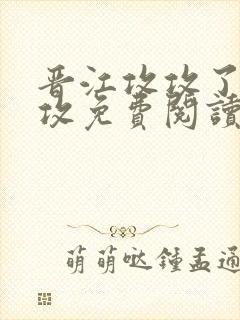 晋江攻攻了
攻免费閱讀
萌萌哒鍾孟通